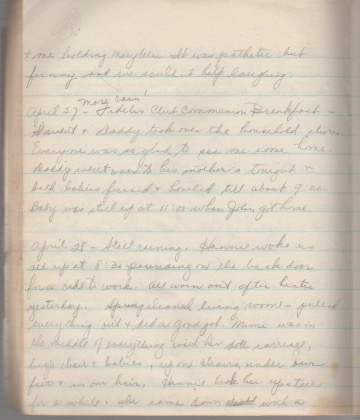 & me holding Marybeth. It was pathetic but
funny and we couldn't help laughing.
More rain!
April 27 – Fidelis Club Communion Breakfast –
& Daddy took over the household chores.
Everyone was so glad to see me come home.
Daddy went over to his mother's tonight &
both babies fussed & howled till about 9:00.
Baby was still up at 11:00 when John got home.
April 28 – Still raining. Hannie woke us
all up at 8:20 pounding on the back door
for a ride to work. All worn out after hectic
yesterday. Spring cleaned living room – pulled
everything out & did a good job. Mimi was in
the middle of everything with her doll carriage,
high chair & babies, up on chairs, under our
feet & in our hair. Hannie took her upstairs
for a while & she came down with a